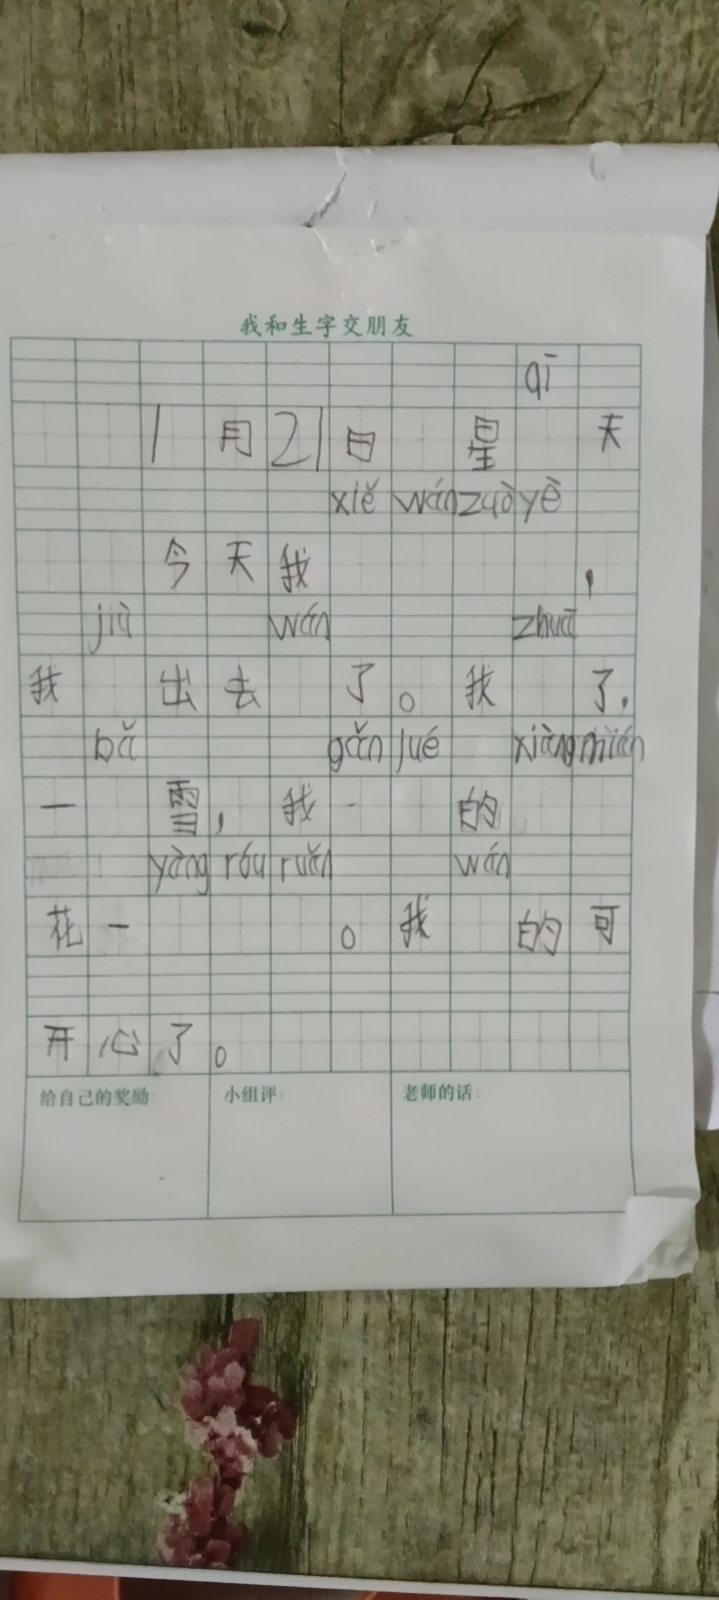 我和生字交朋友
qī
1月21日 星 天
xiě wán zuò yè
今天我 ，
jiù wán zhuā
我 出去 了。我 了，
bǎ gǎn jué xiàng mián
一 雪，我 的
yàng róu ruǎn wán
花一 。我 的可
开心了。
给自己的奖励： 小组评： 老师的话：